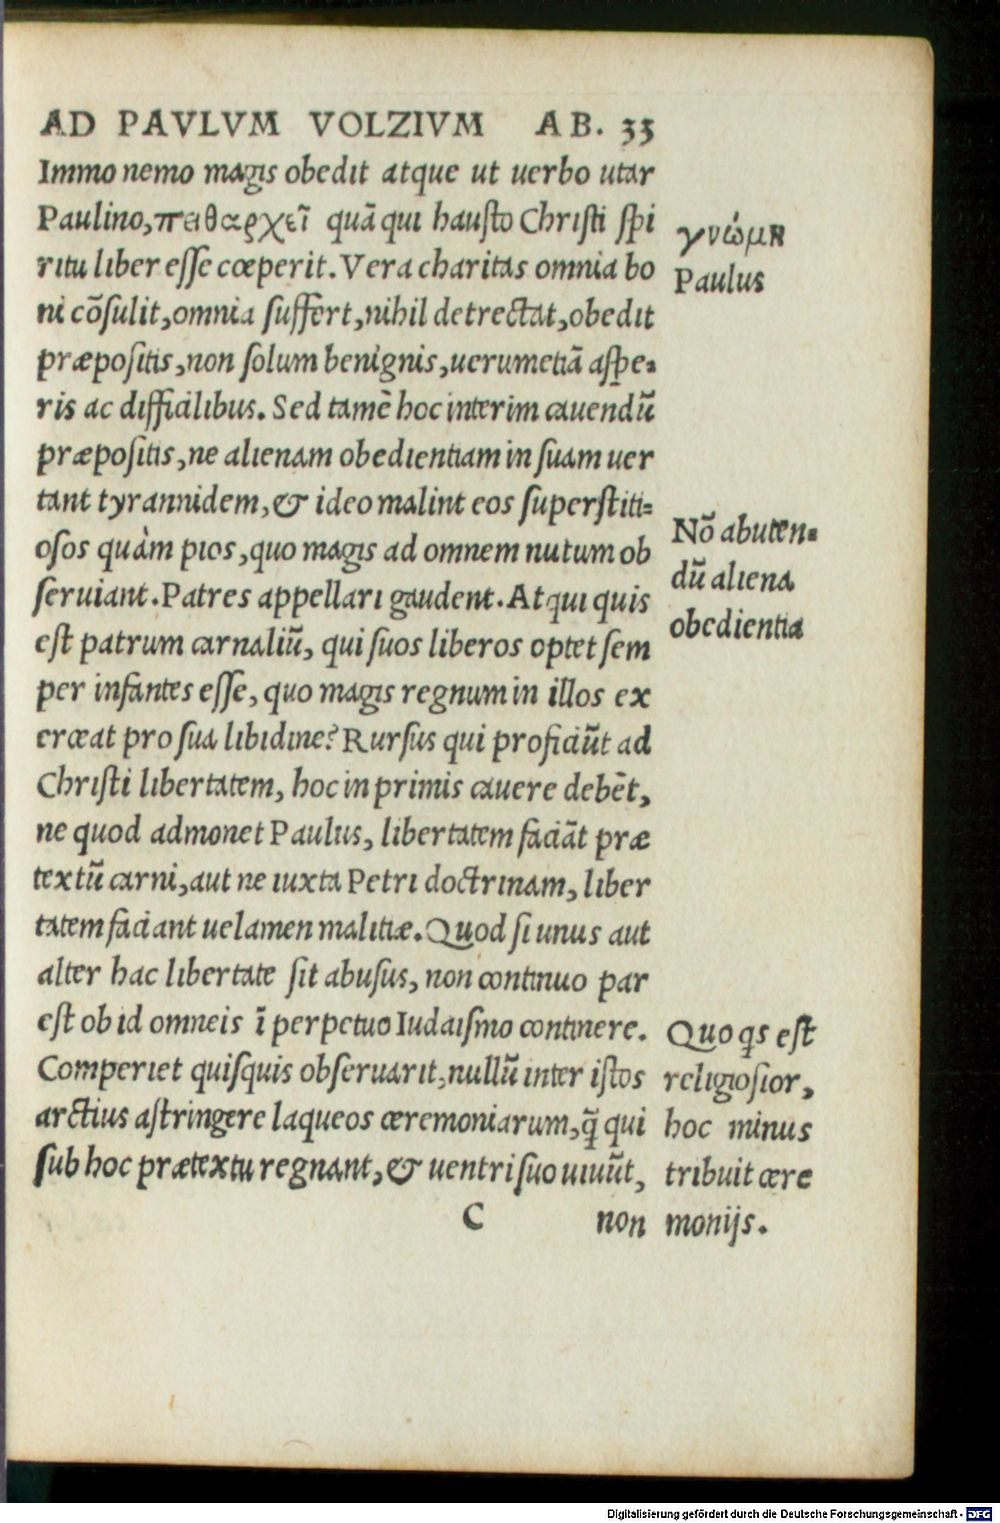 AD PAVLVM VOLZIVM AB. 33
Immo nemo magis obedit atque ut uerbo utar
Paulino, πειθαρχεῖ quā qui hausto Christi spi
ritu liber esse cœperit. Vera charitas omnia bo
ni cōsulit, omnia suffert, nihil detrectat, obedit
præpositis, non solum benignis, uerumetiā aspe-
ris ac difficilibus. Sed tamē hoc interim cauendū
præpositis, ne alienam obedientiam in suam uer
tant tyrannidem, & ideo malint eos superstiti-
osos quàm pios, quo magis ad omnem nutum ob
seruiant. Patres appellari gaudent. Atqui quis
est patrum carnaliū, qui suos liberos optet sem
per infantes esse, quo magis regnum in illos ex
erceat pro sua libidine? Rursus qui proficiūt ad
Christi libertatem, hoc in primis cauere debēt,
ne quod admonet Paulus, libertatem faciāt præ
textū carni, aut ne iuxta Petri doctrinam, liber
tatem faciant uelamen malitiæ. Quod si unus aut
alter hac libertate sit abusus, non continuo par
est ob id omneis ī perpetuo Iudaismo continere.
Comperiet quisquis obseruarit, nullū inter istos
arctius astringere laqueos ceremoniarum, q̄ qui
sub hoc prætextu regnant, & uentri suo uiuūt,
C non
γνώμη
Paulus
Nō abuten-
dū aliena
obedientia
Quo qs est
religiosior,
hoc minus
tribuit cere
monijs.
Digitalisierung gefördert durch die Deutsche Forschungsgemeinschaft - DFG